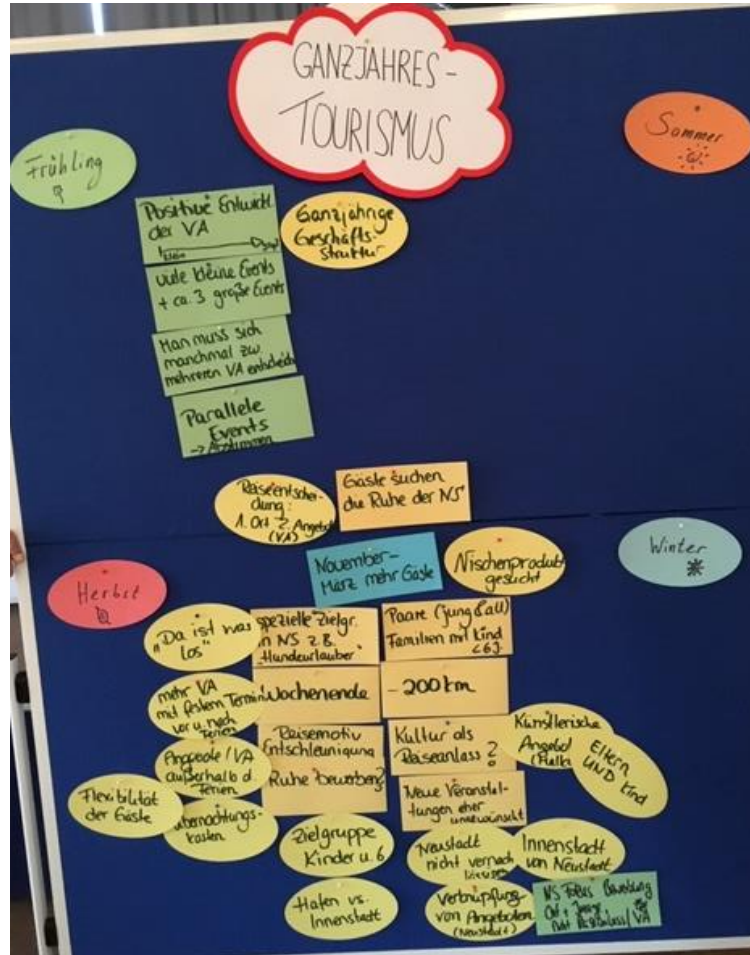 GANZJAHRES-
TOURISMUS
Frühling
Sommer
Positive Entwickl.
der VA
klein
Ganzjährige
Geschäfts-
struktur
viele kleine Events
+ ca. 3 große Events
Man muss sich
manchmal zw.
mehreren VA entscheiden
Parallele
Events
-> Abstimmen
Reiseentschei-
dung:
1. Ort 2. Angebot
(VA)
Gäste suchen
die Ruhe der NS
November-
März mehr Gäste
Nischenprodukt
gesucht
Winter
Herbst
„Da ist was
los"
spezielle Zielgr.
in NS z.B.
„Hundeurlauber"
Paare (jung & alt)
Familien mit Kind
< 6 J.
mehr VA
mit festem Termin
vor u. nach
Ferien
Wochenende
- 200 km
Angebote / VA
außerhalb d.
Ferien
Reisemotiv
Entschleunigung
Ruhe bewerben?
Kultur als
Reiseanlass?
Künstlerische
Angebote
Eltern
UND Kind
Flexibilität
der Gäste
Übernachtungs-
kosten
Neue Veranstal-
tungen eher
unerwünscht
Zielgruppe
Kinder u. 6
Neustadt
nicht vernach-
lässigen
Innenstadt
von Neustadt
Hafen vs.
Innenstadt
Verknüpfung
von Angeboten
(Neustadt)
NS Fokus Bewerbung
Ort +
nicht / VA